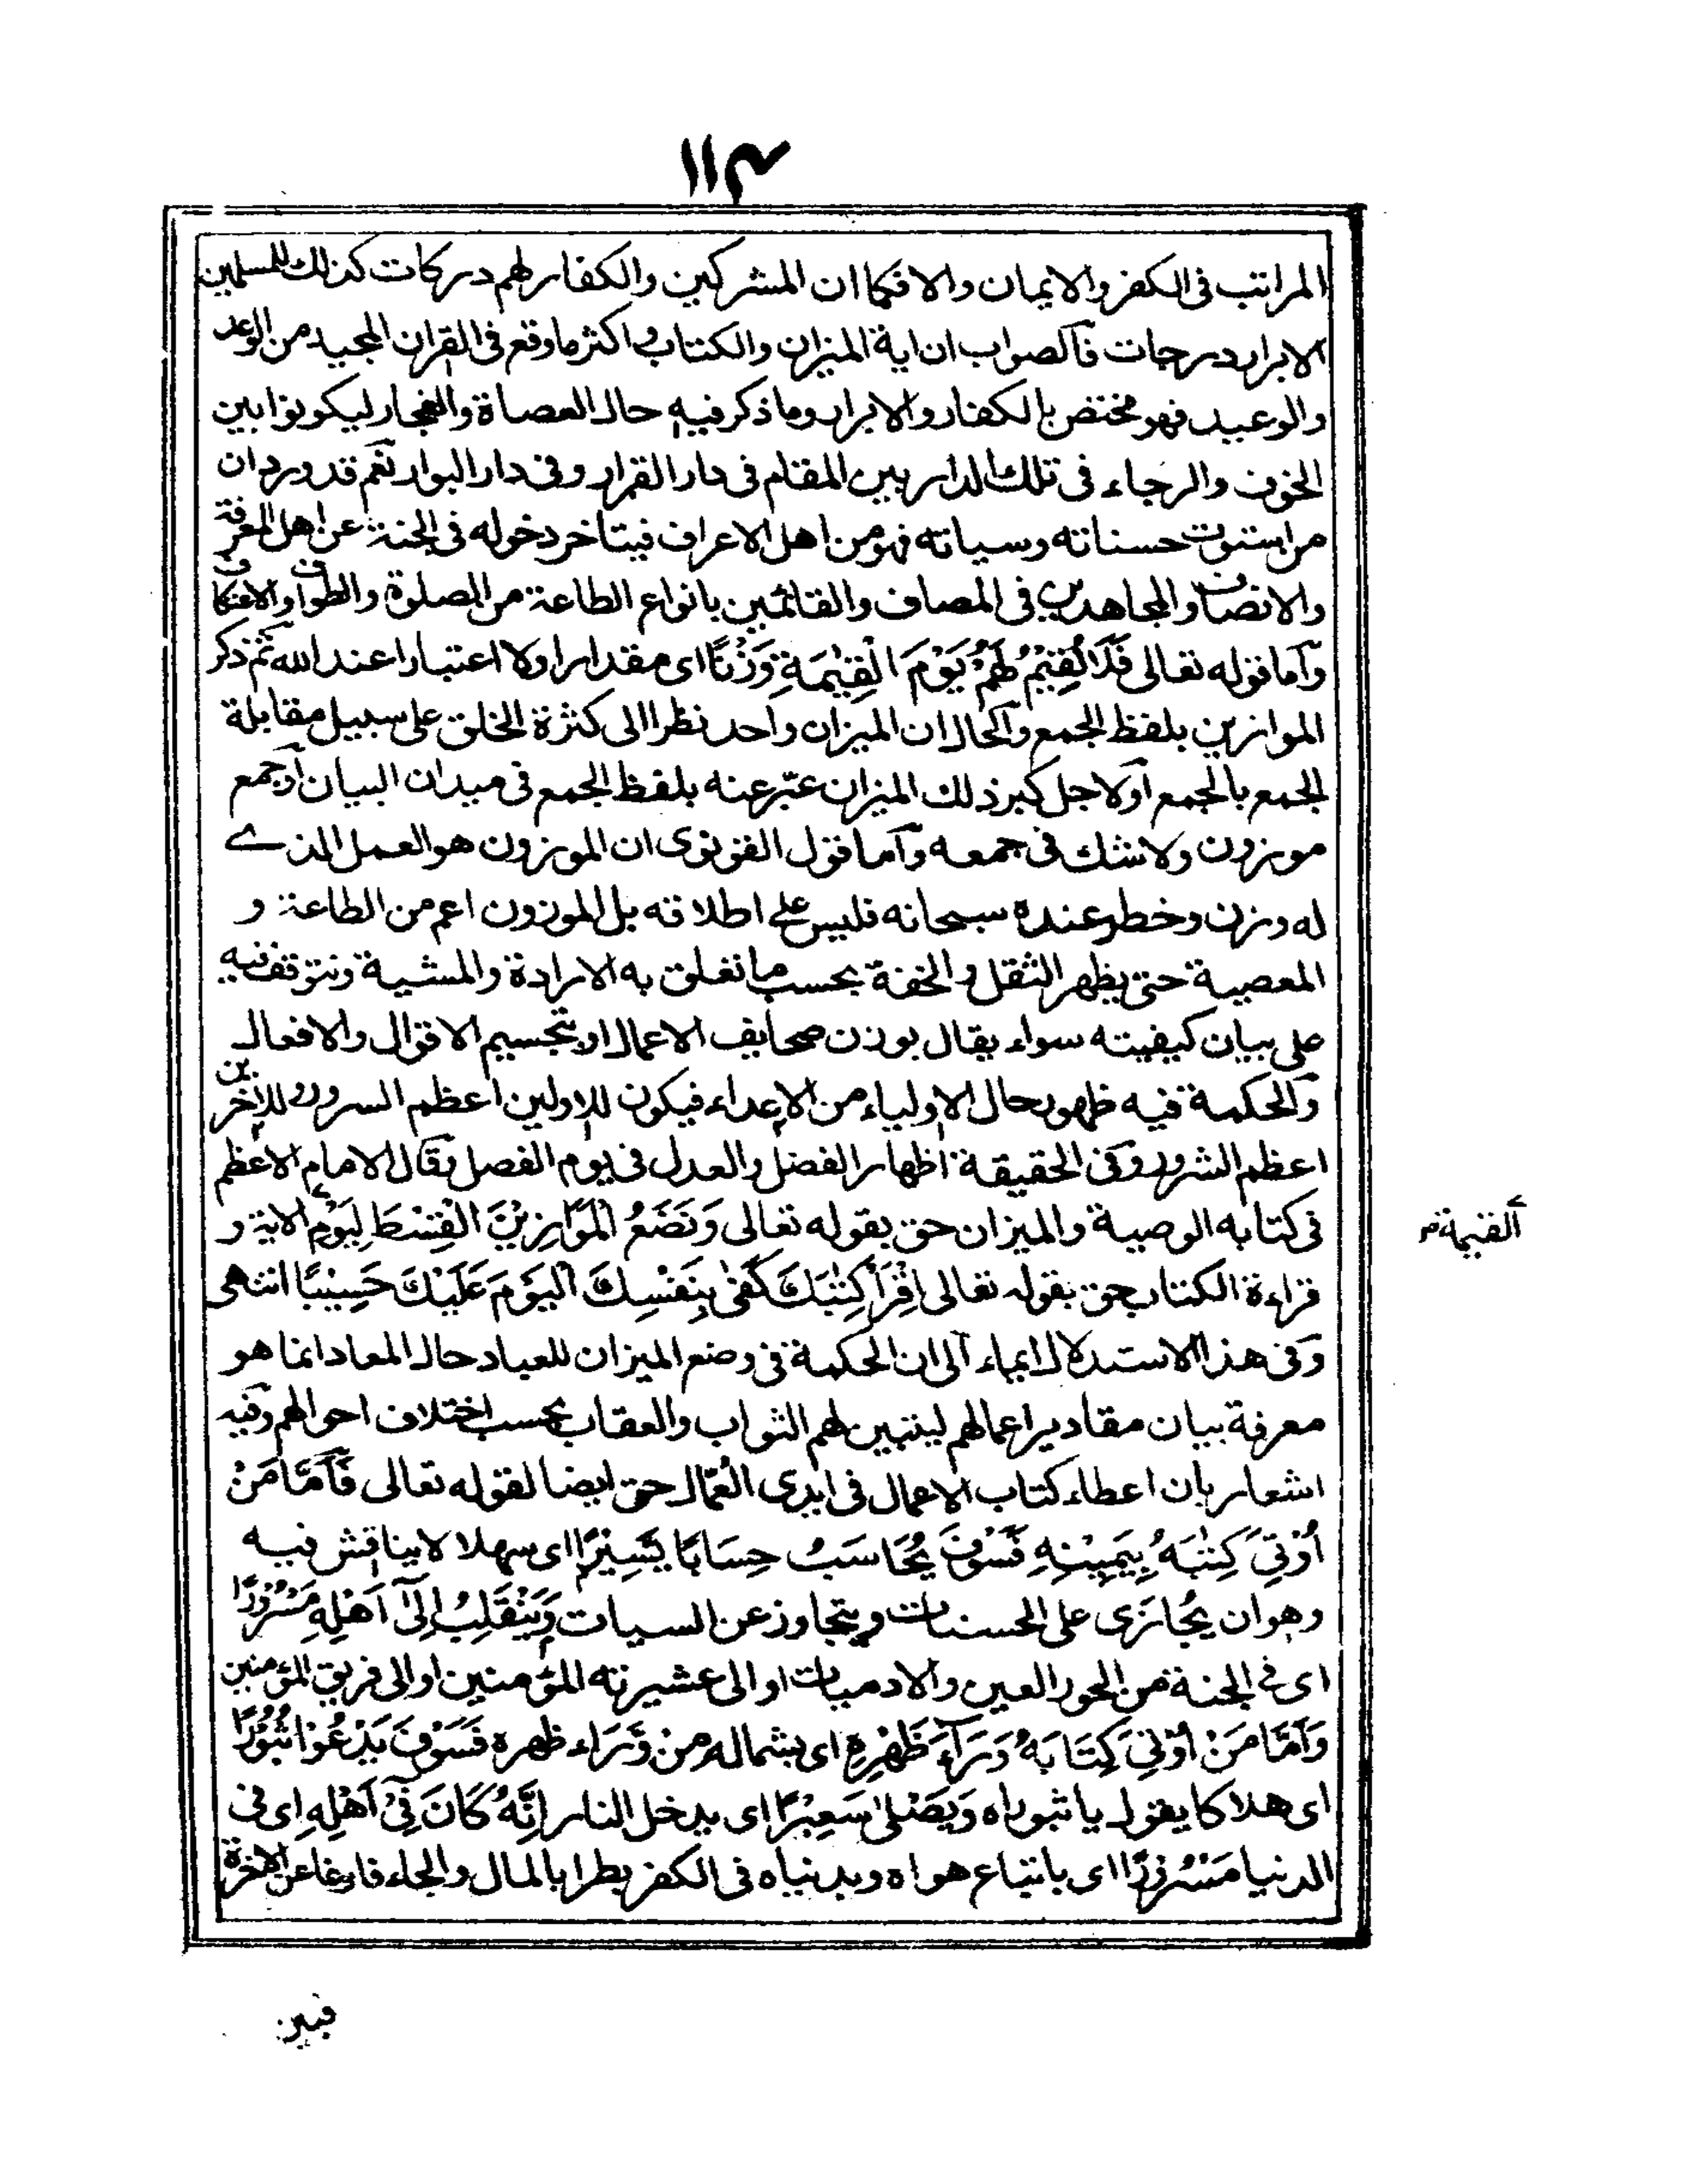 ١١٤
المراتب فى الكفر والايمان والا فكما ان المشركين والكفار لهم دركات كذلك للمسلمين
الابرار درجات فالصواب ان اية الميزان والكتاب و اكثر ما وقع فى القران المجيد من الوعد
والوعيد فهو مختص بالكفار والابرار وما ذكر فيه حال العصاة والفجار ليكونوا بين
الخوف والرجاء فى تلك الدار بين المقام فى دار القرار وفى دار البوار نعم قد ورد ان
من استوت حسناته وسياته فهو من اهل الاعراف فيتاخر دخوله فى الجنة عن اهل المعرفة
والانصاف والمجاهدين فى المصاف والقائمين بانواع الطاعة من الصلوة والطواف والاعتكاف
واما قوله تعالى فَلَا نُقِيْمُ لَهُمْ يَوْمَ الْقِيٰمَةِ وَزْنًا اى مقدارا ولا اعتبارا عند الله ثم ذكر
الموازين بلفظ الجمع والحال ان الميزان واحد نظرا الى كثرة الخلق على سبيل مقابلة
الجمع بالجمع اولاجل كبر ذلك الميزان عبّر عنه بلفظ الجمع فى ميدان البيان اوجمع
موزون ولا شك فى جمعه واما قول القونوى ان الموزون هو العمل الذے
له وزن وخطر عنده سبحانه فليس على اطلاقه بل الموزون اعم من الطاعة و
المعصية حتى يظهر الثقل والخفة بحسب ما تعلق به الارادة والمشية ونتوقف فيه
على بيان كيفيته سواء يقال بوزن صحايف الاعمال او بتجسيم الاقوال والافعال
والحكمة فيه ظهور حال الاولياء من الاعداء فيكون للاولين اعظم السرور وللاخرين
اعظم الشرور وفى الحقيقة اظهار الفضل والعدل فى يوم الفصل وقال الامام الاعظم
فى كتابه الوصية والميزان حق بقوله تعالى وَنَضَعُ الْمَوَازِيْنَ الْقِسْطَ لِيَوْمِ الاية و
القيمة م
قراءة الكتاب حق بقوله تعالى اِقْرَأْ كِتٰبَكَ كَفٰى بِنَفْسِكَ الْيَوْمَ عَلَيْكَ حَسِيْبًا انتهى
وفى هذا الاستدلال ايماء الى ان الحكمة فى وضع الميزان للعباد حال المعاد انما هو
معرفة بيان مقادير اعمالهم ليتبين لهم الثواب والعقاب بحسب اختلاف احوالهم وفيه
اشعار بان اعطاء كتاب الاعمال فى ايدى العُمّال حق ايضا لقوله تعالى فَاَمَّا مَنْ
اُوْتِيَ كِتٰبَهُ بِيَمِيْنِهِ فَسَوْفَ يُحَاسَبُ حِسَابًا يَسِيْرًا اى سهلا لا يناقش فيه
وهو ان يُجازى على الحسنات ويتجاوز عن السيات وَيَنْقَلِبُ اِلٰٓى اَهْلِهِ مَسْرُوْرًا
اى فى الجنة من الحور العين والادميات او الى عشيرته المؤمنين او الى فريق المؤمنين
وَاَمَّا مَنْ اُوْتِيَ كِتَابَهُ وَرَآءَ ظَهْرِهِ اى بشماله من وَّرَاء ظهره فَسَوْفَ يَدْعُوْا ثُبُوْرًا
اى هلاكا يقول يا ثبوراه وَيَصْلٰى سَعِيْرًا اى يدخل النار اِنَّهُ كَانَ فِيْٓ اَهْلِهِ اى فى
الدنيا مَسْرُوْرًا اى باتباع هواه وبدنياه فى الكفر بطرا بالمال والجاه فارغا عن الاخرة